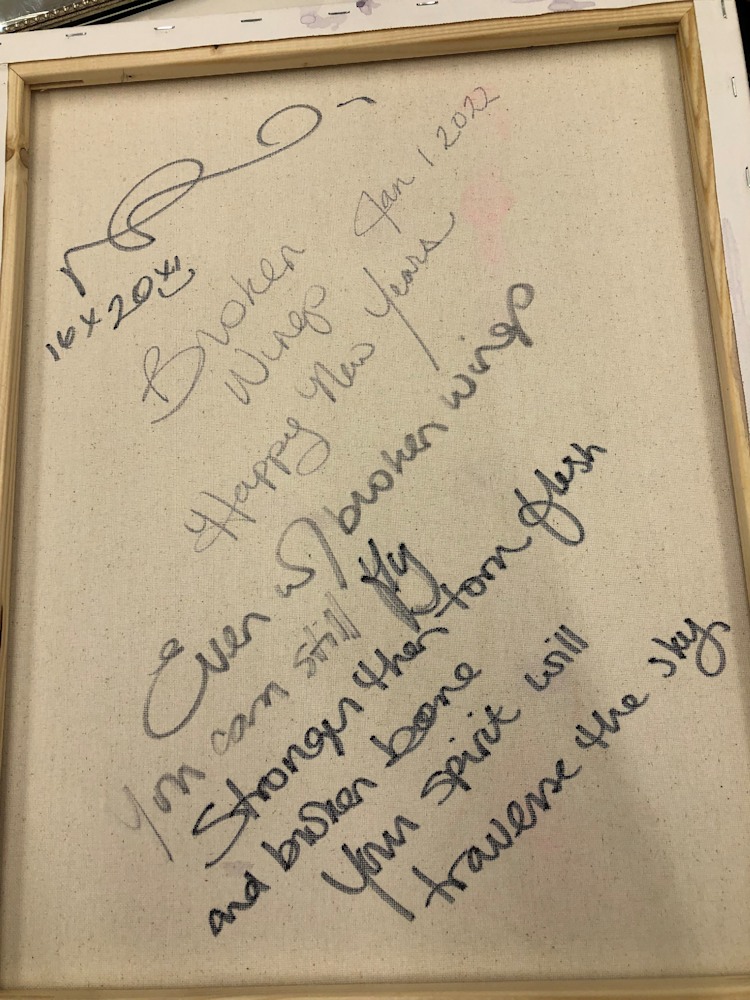 16 x 20 x 1
Broken
Wings
Jan 1 2022
Happy New Years
Even w/ broken wings
You can still fly
Stronger then torn flesh
and broken bone
Your spirit will
traverse the sky